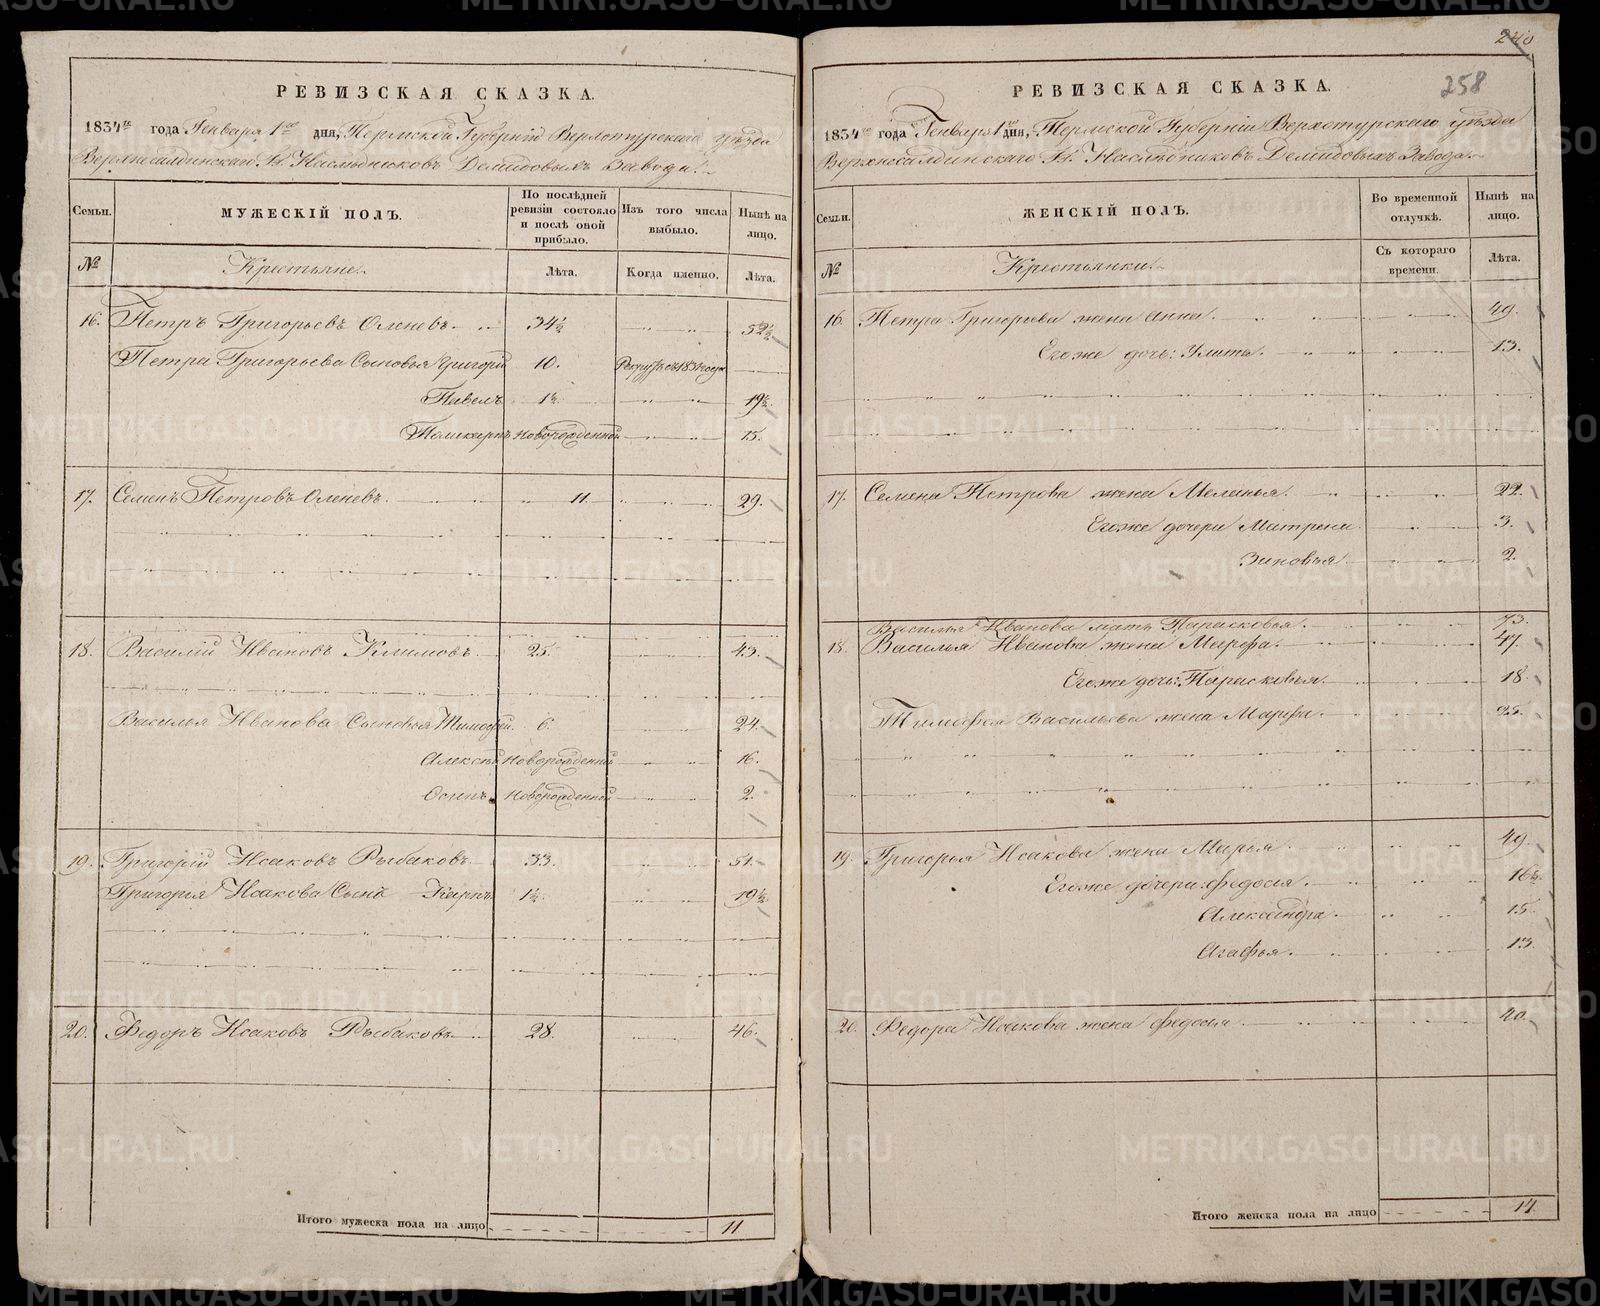 РЕВИЗСКАЯ СКАЗКА.
1834го года Генваря 1го дня, Пермской Губерніи Верхотурскаго уѣзда
Верхнесалдинскаго Гг. Наслѣдниковъ Демидовыхъ Завода.
Семьи.
МУЖЕСКІЙ ПОЛЪ.
По послѣдней ревизіи состояло и послѣ оной прибыло.
Изъ того числа выбыло.
Нынѣ на лицо.
№ Крестьяне. Лѣта. Когда именно. Лѣта.
16. Петръ Григорьевъ Оленевъ 34½ 52½
Петра Григорьева Сыновья Григорій 10. Рекрутъ въ 1831 году
Павелъ 1½ 19½
Поликарпъ новорожденной 15.
17. Семенъ Петровъ Оленевъ 11 29.
18. Василій Ивановъ Климовъ 25. 43.
Василья Иванова Сыновья Тимофей 6. 24.
Алексѣй новорожденной 16.
Осипъ новорожденной 2.
19. Григорій Исаковъ Рыбаковъ 33. 51.
Григорья Исакова Сынъ Карпъ 1½ 19½
20. Федоръ Исаковъ Рыбаковъ 28. 46.
Итого мужеска пола на лицо 11
240
258
РЕВИЗСКАЯ СКАЗКА.
1834го года Генваря 1го дня, Пермской Губерніи Верхотурскаго уѣзда
Верхнесалдинскаго Гг. Наслѣдниковъ Демидовыхъ Завода.
Семьи.
ЖЕНСКІЙ ПОЛЪ.
Во временной отлучкѣ.
Нынѣ на лицо.
№ Крестьянки. Съ котораго времени. Лѣта.
16. Петра Григорьева жена Анна. 49.
Его же дочь: Улита. 13.
17. Семена Петрова жена Меланья. 22.
Его же дочери Матрена 3.
Зиновья 2.
Василья Иванова мать Парасковья. 73.
18. Василья Иванова жена Марфа. 47.
Его же дочь: Парасковья. 18
Тимофея Васильева жена Марфа. 25.
19. Григорья Исакова жена Марья. 49.
Его же дочери: Федосья. 16½
Александра. 15.
Агафья. 13.
20. Федора Исакова жена Федосья. 40.
Итого женска пола на лицо 14
METRIKI.GASO-URAL.RU